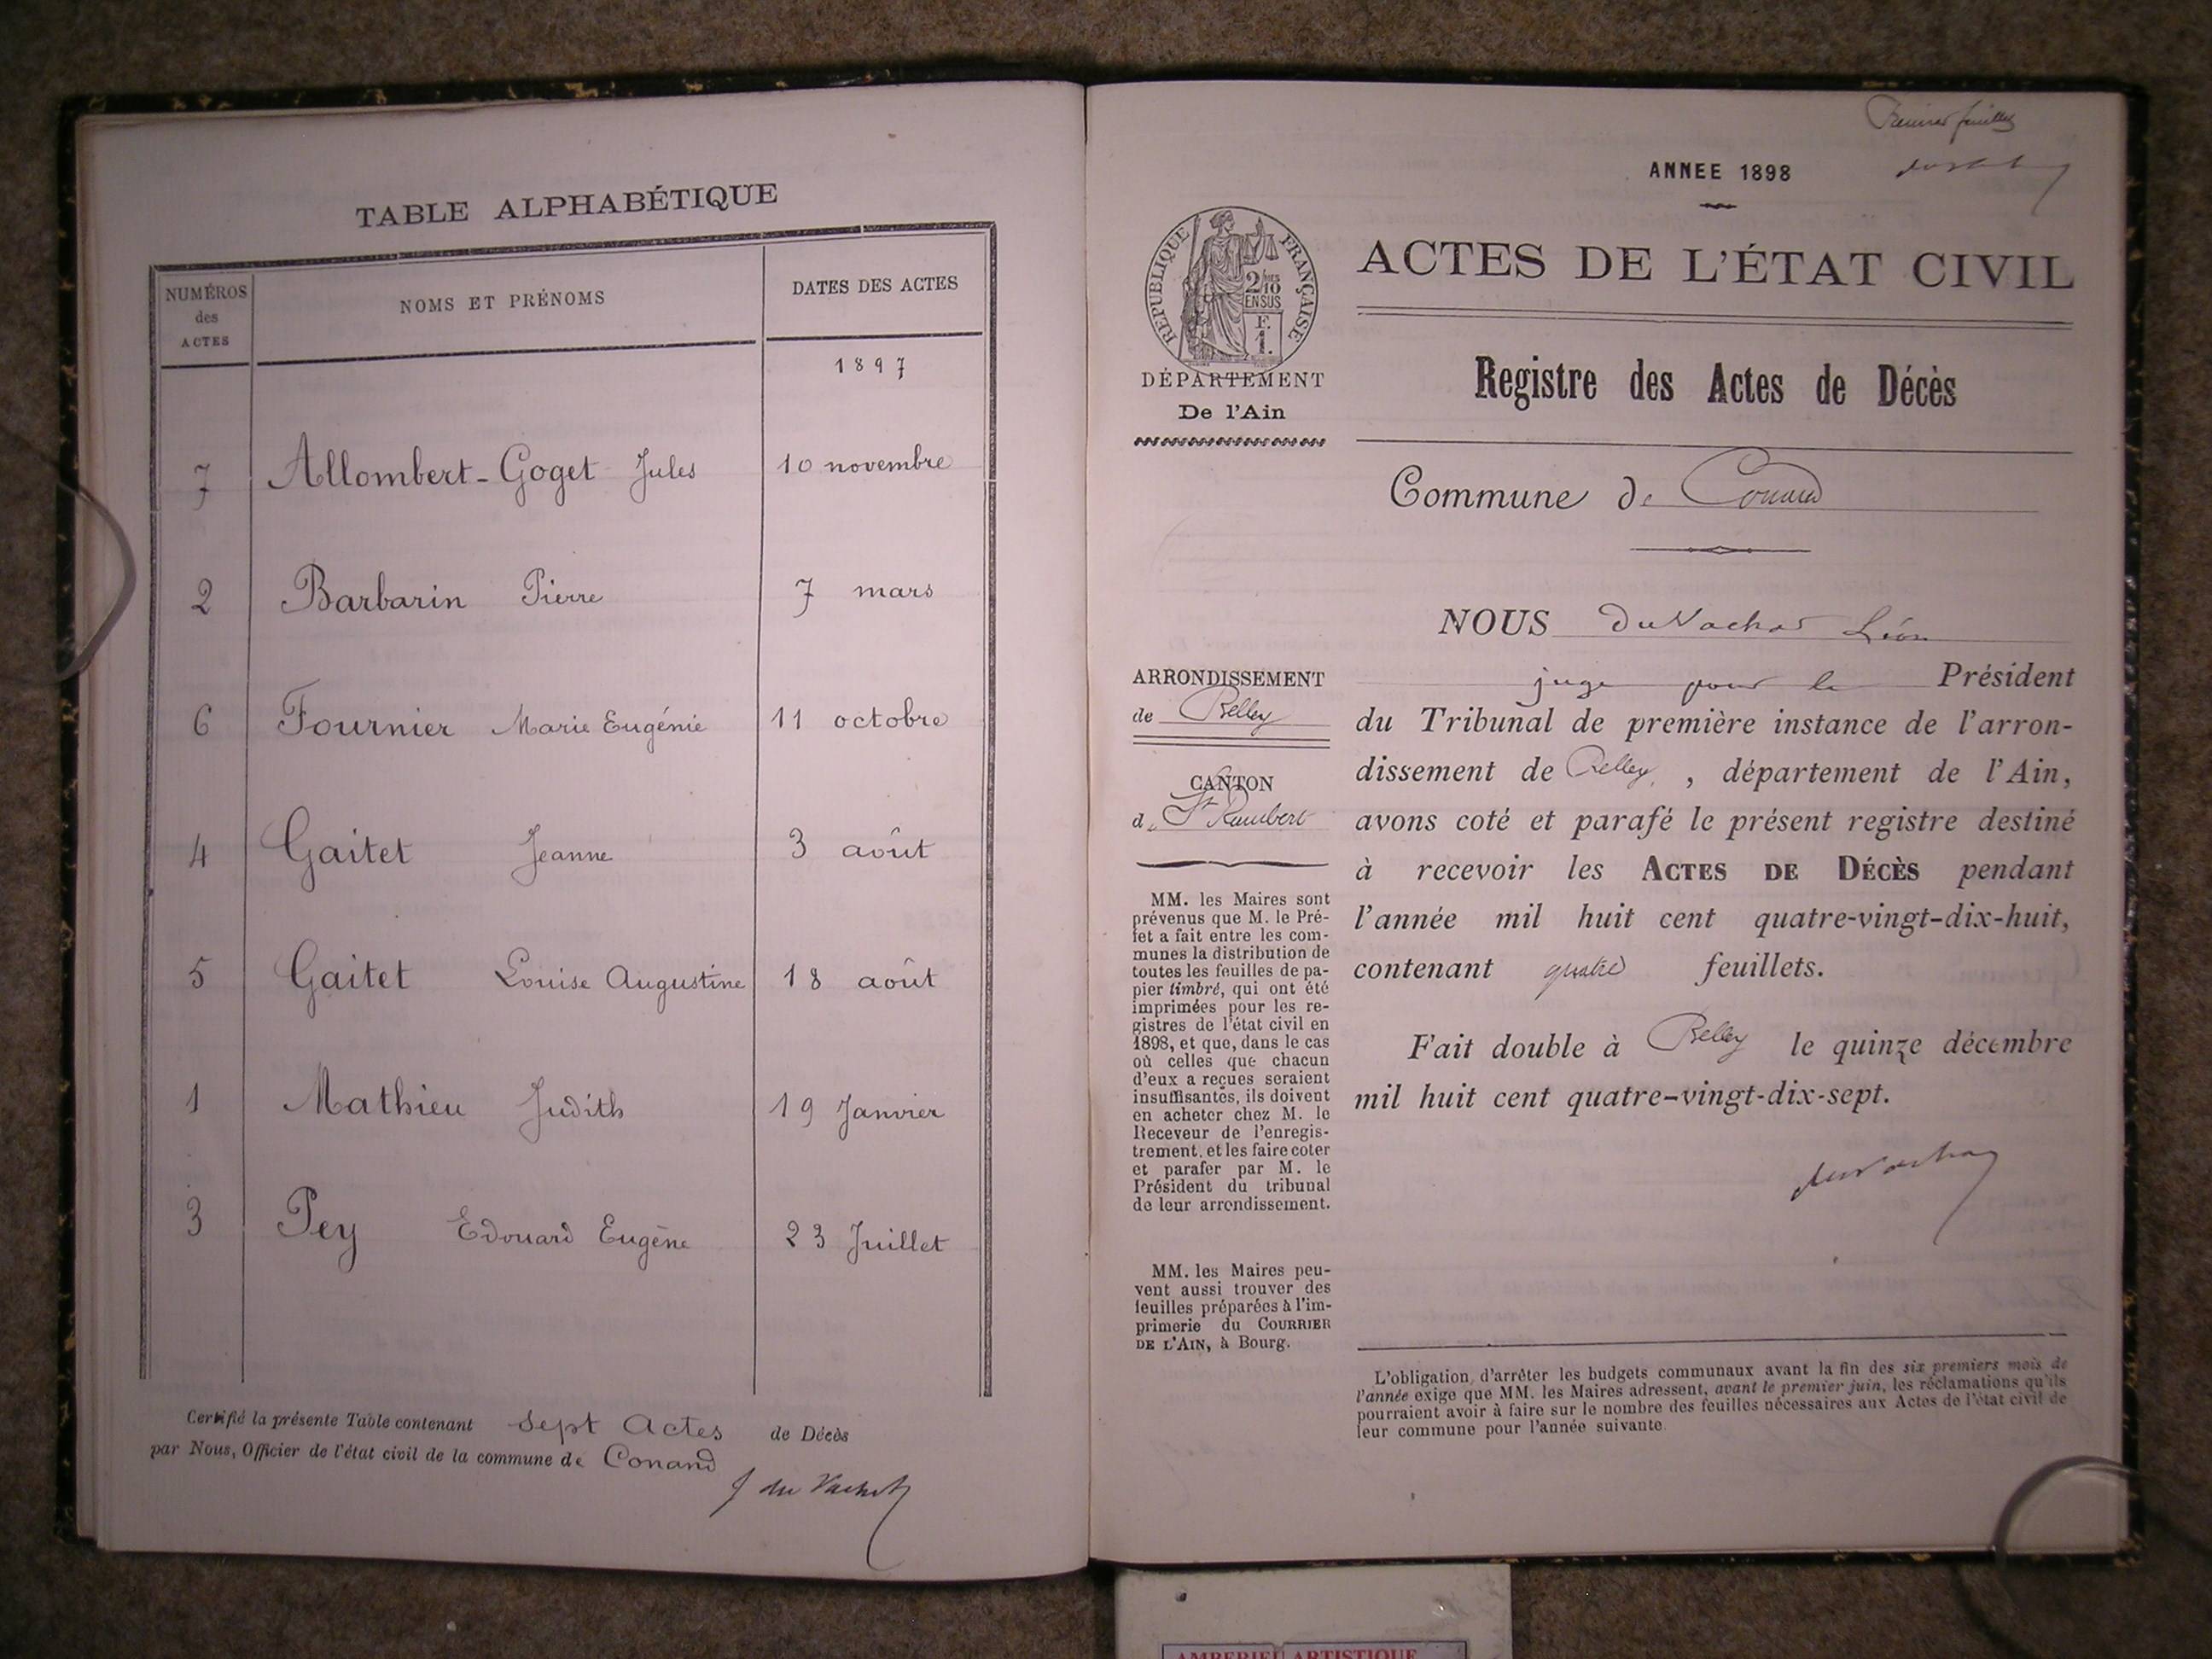 TABLE ALPHABÉTIQUE
NUMÉROS
des
ACTES
NOMS ET PRÉNOMS
DATES DES ACTES
1897
7 Allombert-Goget Jules 10 novembre
2 Barbarin Pierre 7 mars
6 Fournier Marie Eugénie 11 octobre
4 Gaitet Jeanne 3 août
5 Gaitet Louise Augustine 18 août
1 Mathieu Judith 19 Janvier
3 Pey Edouard Eugène 23 Juillet
Certifié la présente Table contenant sept Actes de Décès
par Nous, Officier de l'état civil de la commune de Conand
Premier feuillet
ANNEE 1898
ACTES DE L'ÉTAT CIVIL
RÉPUBLIQUE FRANÇAISE
2/10
EN SUS
F.
1.
DÉPARTEMENT
De l'Ain
Registre des Actes de Décès
Commune de Conand
NOUS duVachat Léon
juge pour le Président
du Tribunal de première instance de l'arron-
dissement de Belley, département de l'Ain,
avons coté et parafé le présent registre destiné
à recevoir les ACTES DE DÉCÈS pendant
l'année mil huit cent quatre-vingt-dix-huit,
contenant quatre feuillets.
Fait double à Belley le quinze décembre
mil huit cent quatre-vingt-dix-sept.
ARRONDISSEMENT
de Belley
CANTON
de St Rambert
MM. les Maires sont
prévenus que M. le Pré-
fet a fait entre les com-
munes la distribution de
toutes les feuilles de pa-
pier timbré, qui ont été
imprimées pour les re-
gistres de l'état civil en
1898, et que, dans le cas
où celles que chacun
d'eux a reçues seraient
insuffisantes, ils doivent
en acheter chez M. le
Receveur de l'enregis-
trement, et les faire coter
et parafer par M. le
Président du tribunal
de leur arrondissement.
MM. les Maires peu-
vent aussi trouver des
feuilles préparées à l'im-
primerie du COURRIER
DE L'AIN, à Bourg.
L'obligation d'arrêter les budgets communaux avant la fin des six premiers mois de
l'année exige que MM. les Maires adressent, avant le premier juin, les réclamations qu'ils
pourraient avoir à faire sur le nombre des feuilles nécessaires aux Actes de l'état civil de
leur commune pour l'année suivante.
AMBERIEU ARTISTIQUE